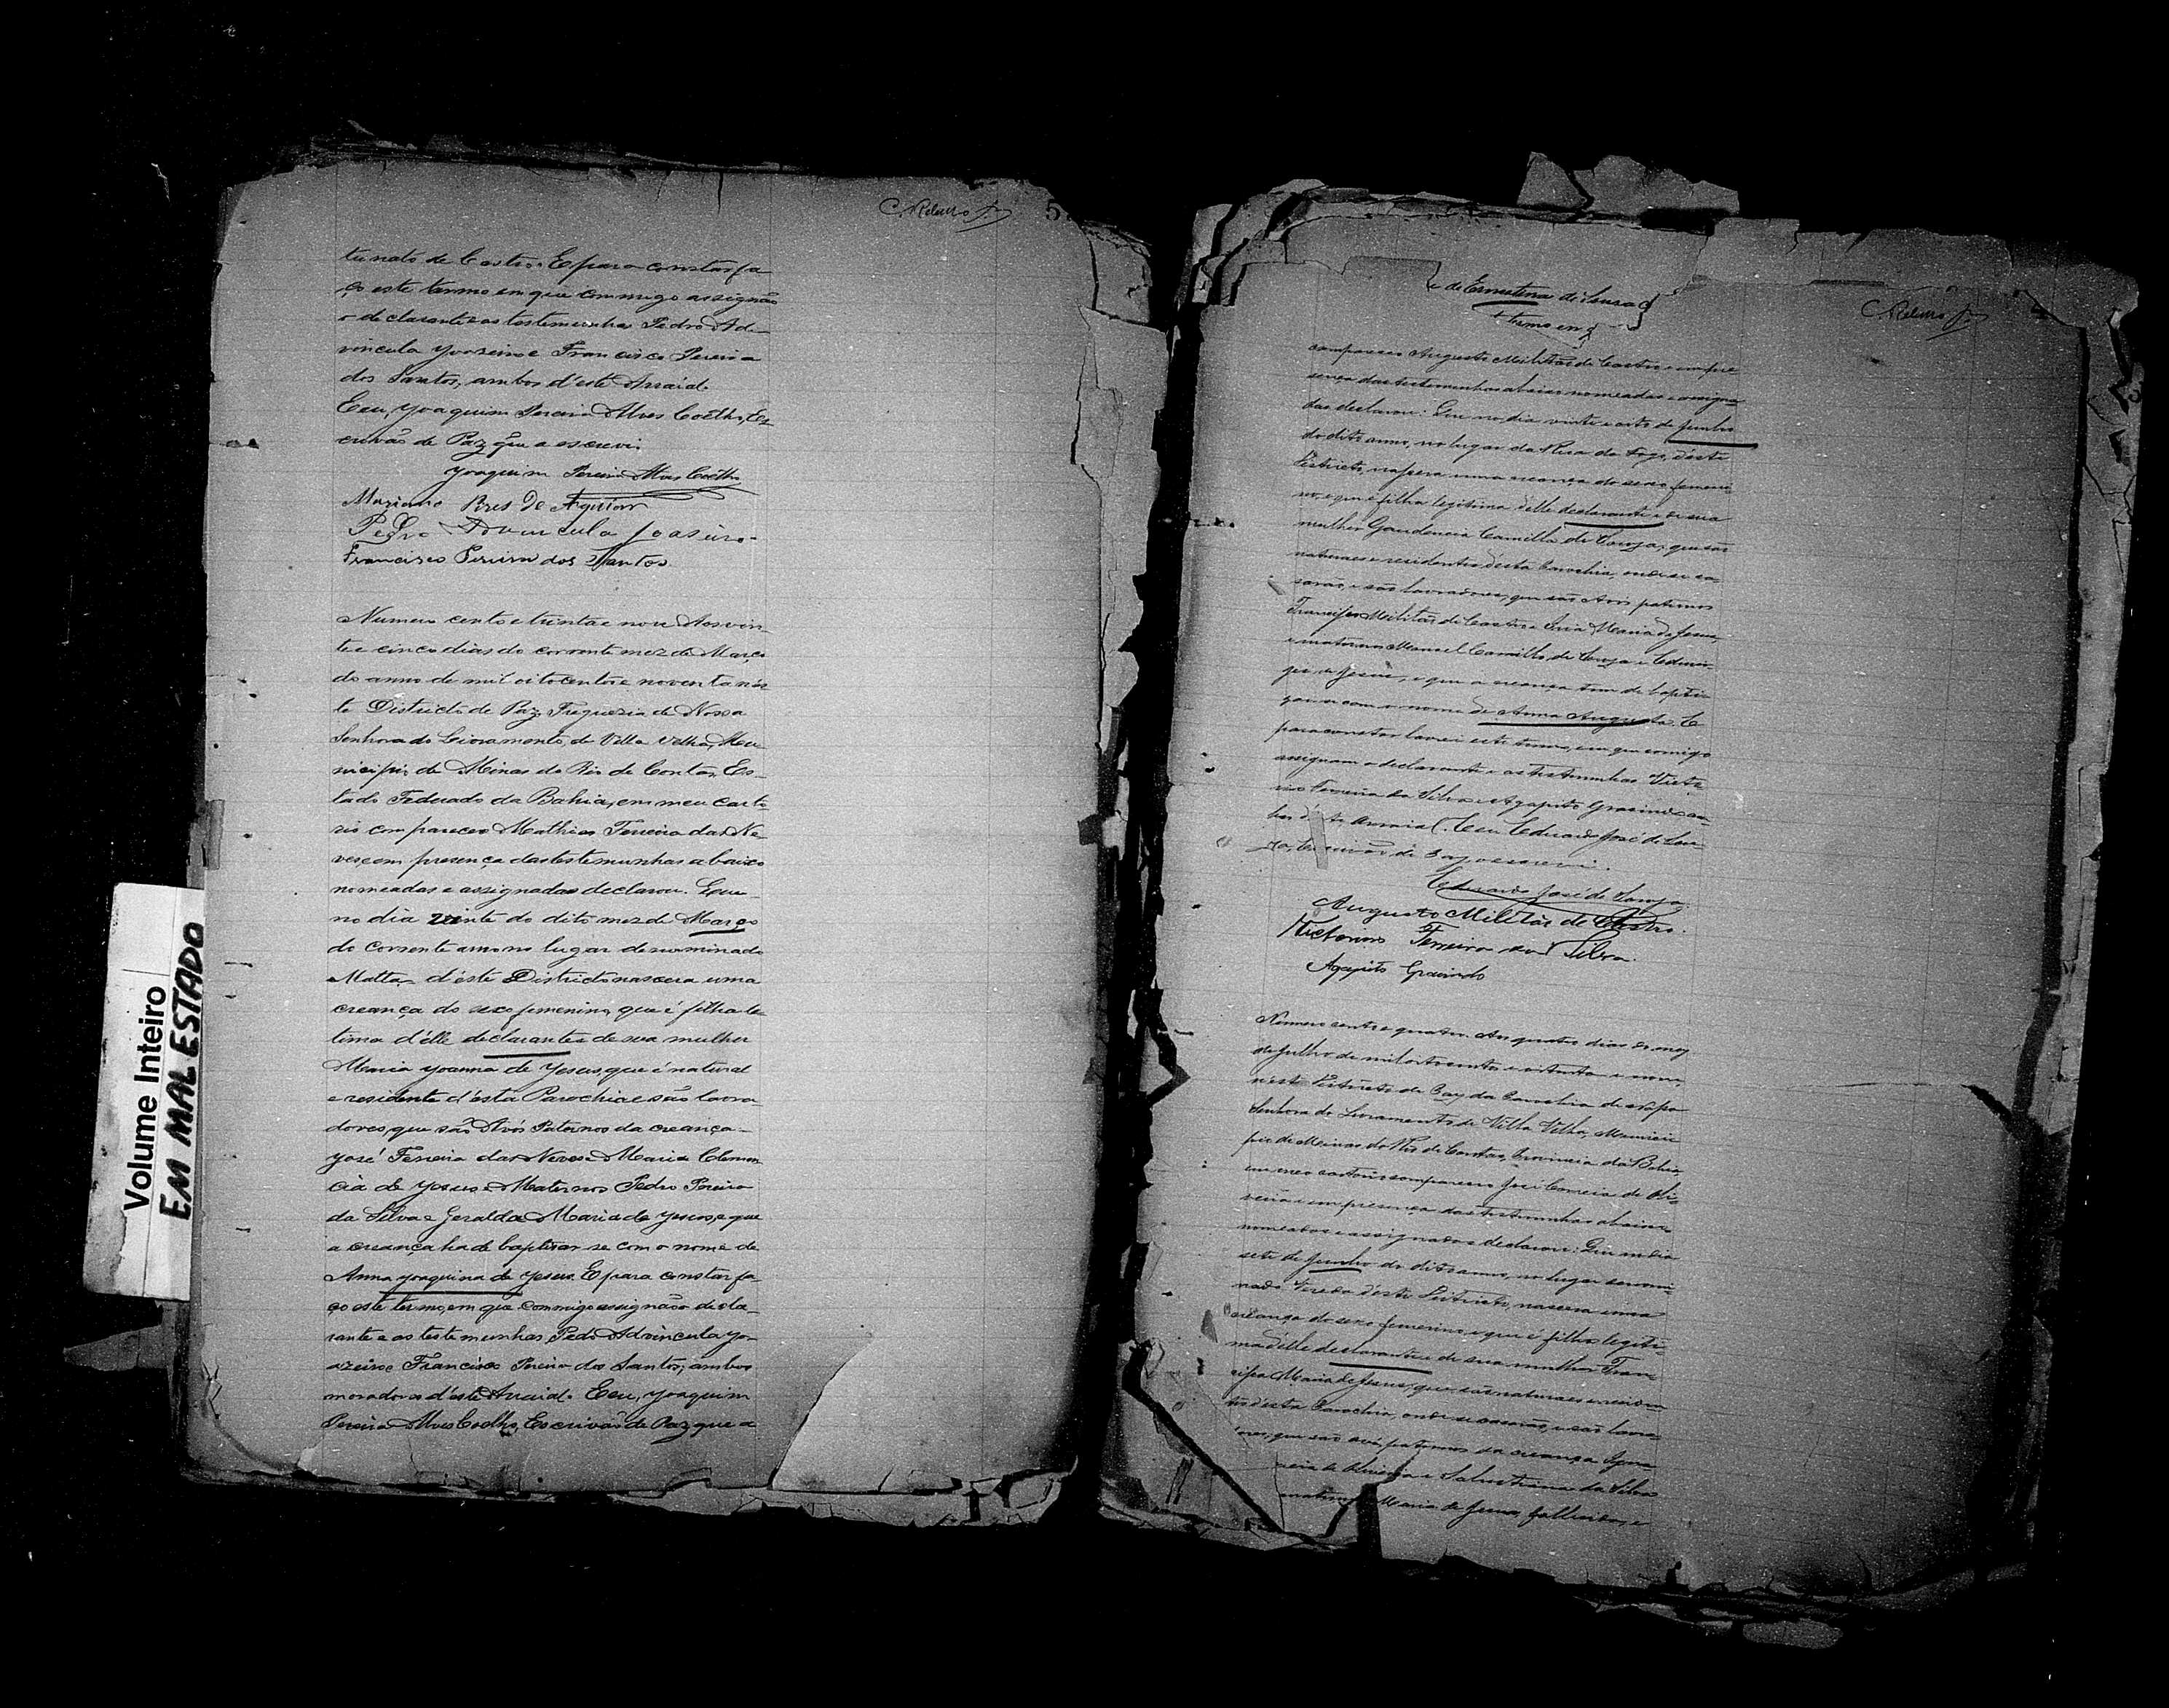 Volume Inteiro
EM MAL ESTADO
C. Rebello Jr.
5
tunato de Castro. E para constar fa
ço este termo em que commigo assignão
o declarante e as testemunhas Pedro Ad-
vincula Yoazeiro e Francisco Pereira
dos Santos, ambos d'este Arraial.
Eeu, Yoaquim Pereira Alves Coêlho, Es
crivão de Paz que a escrevi.
Yoaquim Pereira Alves Coêlho
Mariano Pires De Aguiar
Pedro Advincula Joaseiro.
Francisco Pereira dos Santos
Numero cento e trinta e nove Aos vin-
te e cinco dias do corrente mez de Março
do anno de mil oitocentos e noventa nés
te Districto de Paz, Freguezia de Nossa
Senhora do Livramento, de Villa Velha, Mu
nicipio de Minas do Rio de Contas, Es-
tado Federado da Bahia, em meu carto
rio compareceo Mathias Ferreira das Ne-
ves, e em presença das testemunhas abaixo
nomeadas e assignadas declarou. Que
no dia vinte do dito mez de Março
do corrente anno no lugar denominado
Matta, d'éste Districto nascera uma
creança do sexo femenino, que é filha le
tima d'élle declarante e de sua mulher
Maria Yoanna de Yesus, que é natural
e residente d'ésta Parochia e são lavra
dores, que são Avós Paternos da creança
Yosé Ferreira das Neves e Maria Clemen
cia de Yesus e Maternos Pedro Pereira
da Silva e Geralda Maria de Yesus, e que
a creança ha de baptisar-se com o nome de
Anna Yoaquina de Yesus. E para constar fa-
ço este termo, em que commigo assignão o decla-
rante e as testemunhas Pedro Advincula Yo-
azeiro e Francisco Pereira dos Santos, ambos
moradores d'éste Arraial. Eeu, Yoaquim
Pereira Alves Coelho, Escrivão de Paz que a
C. Rebello Jr.
e de Ernestina de Souza
termo em
compareceo Augusto Militão de Castro e em pre
sença das testemunhas abaixo nomeadas e assigna
das declarou: Que no dia vinte e oito de Junho
do dito anno, no lugar da d'este
Districto, nascera uma creança do sexo femeni
no, e que é filha legitima d'elle declarante e de sua
mulher Gaudencia Camilla de Souza, que são
naturaes e residentes d'ésta Parochia, onde se ca
sarão, e são lavradores, que são Avós paternos
Francisco Militão de Castro e Maria de Jesus,
e maternos Manoel Camillo de Souza e Eduvi-
ges de Jesus, e que a creança tem de bapti
zar-se com o nome de Anna Augusta. E
para constar lavrei este termo, em que comigo
assignam o declarante e as testemunhas Victo
rino Ferreira da Silva e Agapito Gracindo am-
bos Arraial. Eeu Eduardo José de Sou-
za, Escrivão de Paz o escrevi.
Eduardo José de Souza
Augusto Militão de Castro.
Victorino Ferreira da Silva.
Agapito Gracindo
Número cento e quatro. Aos quatro dias do mez
de Julho de mil oitocentos e oitenta e nove
n'este Districto de Paz da Parochia de Nossa
Senhora do Livramento de Villa Velha, Munici
pio de Minas do Rio de Contas, Provincia da Bahia
em meo cartorio compareceo José Correia de Oli-
veira e em presença das testemunhas abaixo
nomeadas e assignadas declarou: Que no dia
sete de Junho do dito anno, no lugar denomi-
nado Vereda d'este Districto, nascera uma
creança do sexo femenino e que é filha legiti-
ma d'elle declarante e de sua mulher Fran
cisca Maria de Jesus, que são naturaes e residen
tes d'esta Parochia, onde se casarão, e são lavra-
dores, que são avós paternos da creança Igna
cio de Oliveira e Salustiana da Silva
maternos Maria de Jesus, fallecida, e